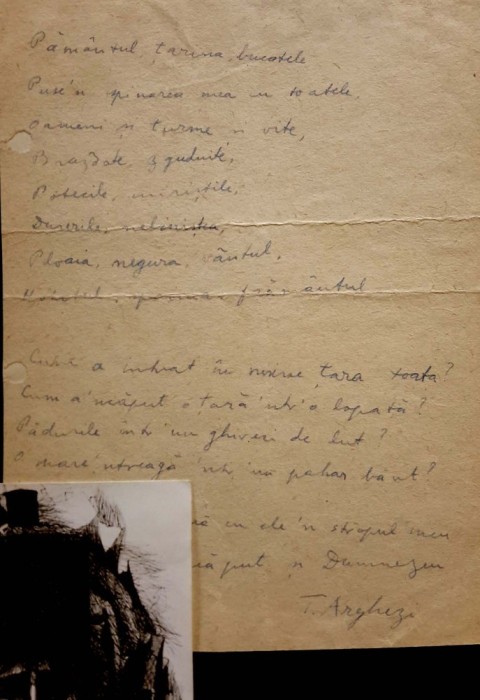 Pământul, țarina, bucatele
Puse'n spinarea mea cu toatele,
Oameni și turme și vite,
Brazdate, zguduite,
Potecile, miriștile,
Durerile,
Ploaia, negura, vântul,
frământul
Cum a intrat în mine țara toată?
Cum a'ncăput o țară 'ntr'o lopată?
Pădurile într'un ghiveci de lut?
O mare 'ntreagă 'ntr'un pahar băut?
cu ele'n stropul meu
căput și Dumnezeu
T. Arghezi